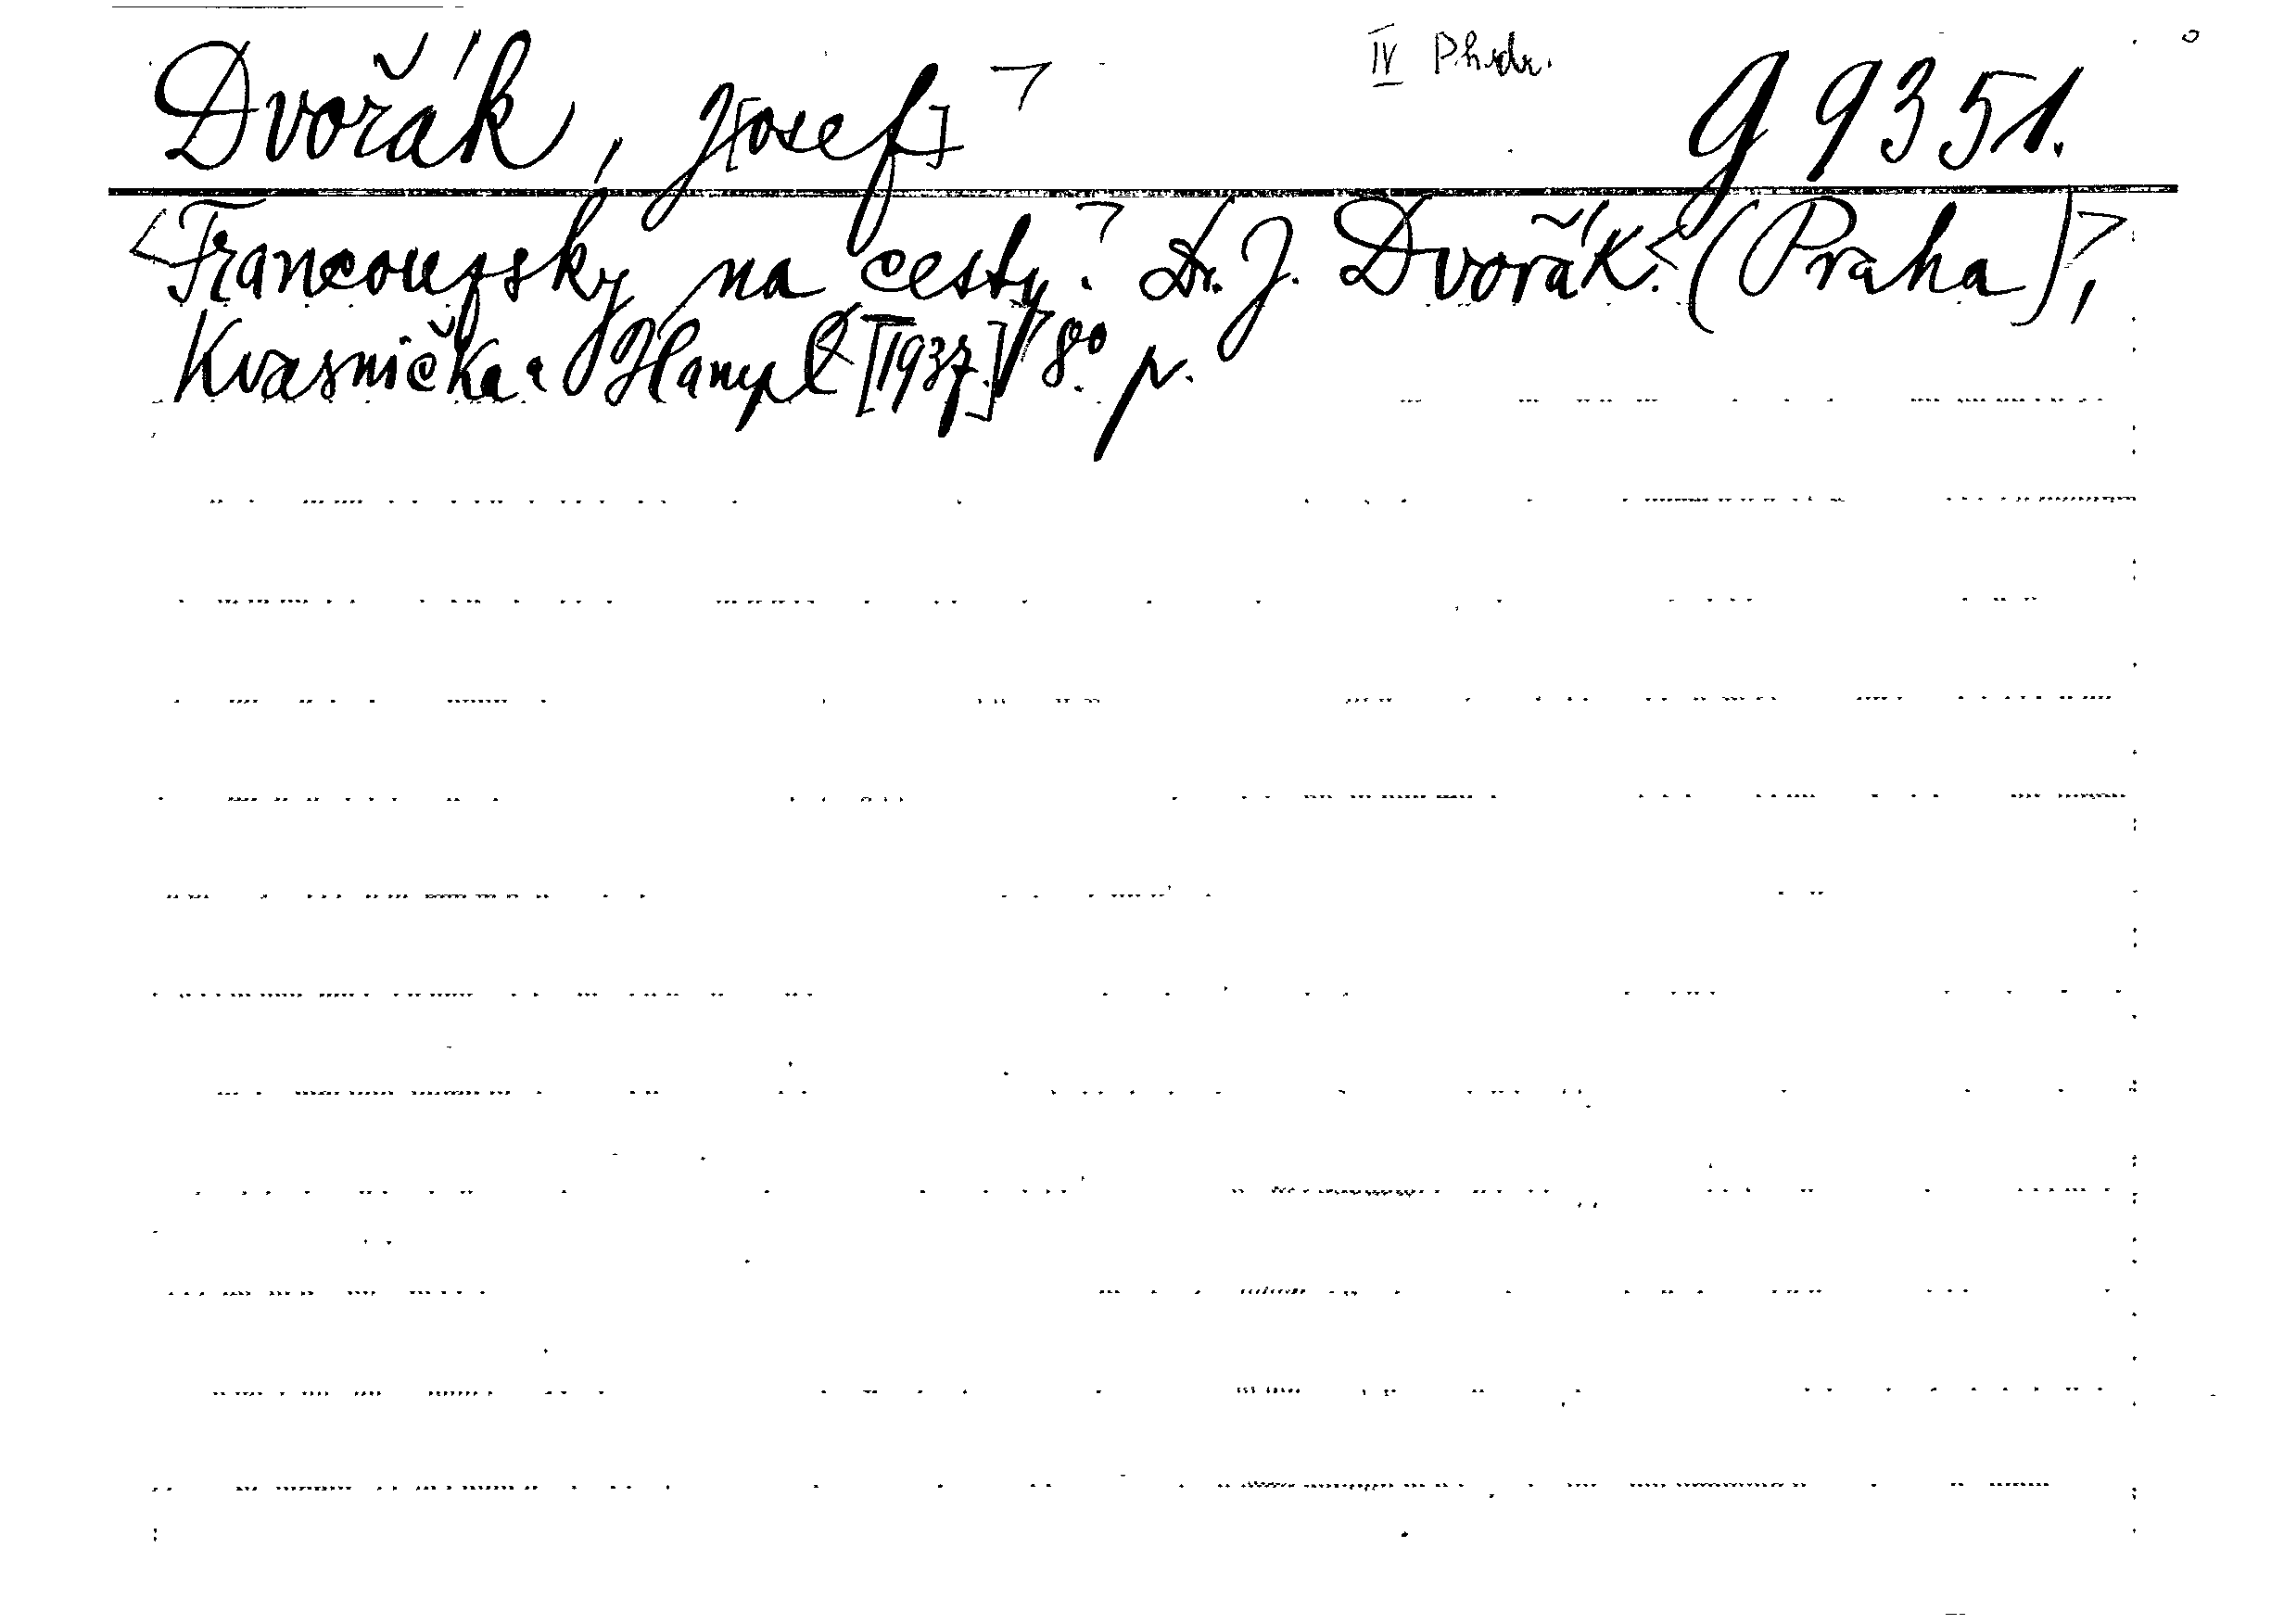 IV Phdr.
Dvořák, J[osef] g 9351.
Francouzsky na cesty. Dr. J. Dvořák. (Praha),
Kvasnička a Hampl [1937.] 8° p.